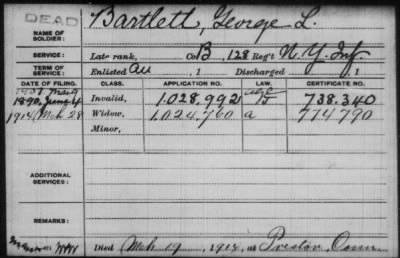 DEAD
NAME OF SOLDIER: Bartlett, George L.
SERVICE: Late rank, Co. B, 128 Reg't N.Y. Inf.
TERM OF SERVICE: Enlisted , 1 Discharged , 1
DATE OF FILING. CLASS. APPLICATION NO. LAW. CERTIFICATE NO.
1890, June 4 Invalid, 1.028.992 738.340
1914 Mch 28 Widow, 1.024,760 a 774790
Minor,
ADDITIONAL SERVICES:
REMARKS:
Died Mch 19, 1914, at Preston, Conn.